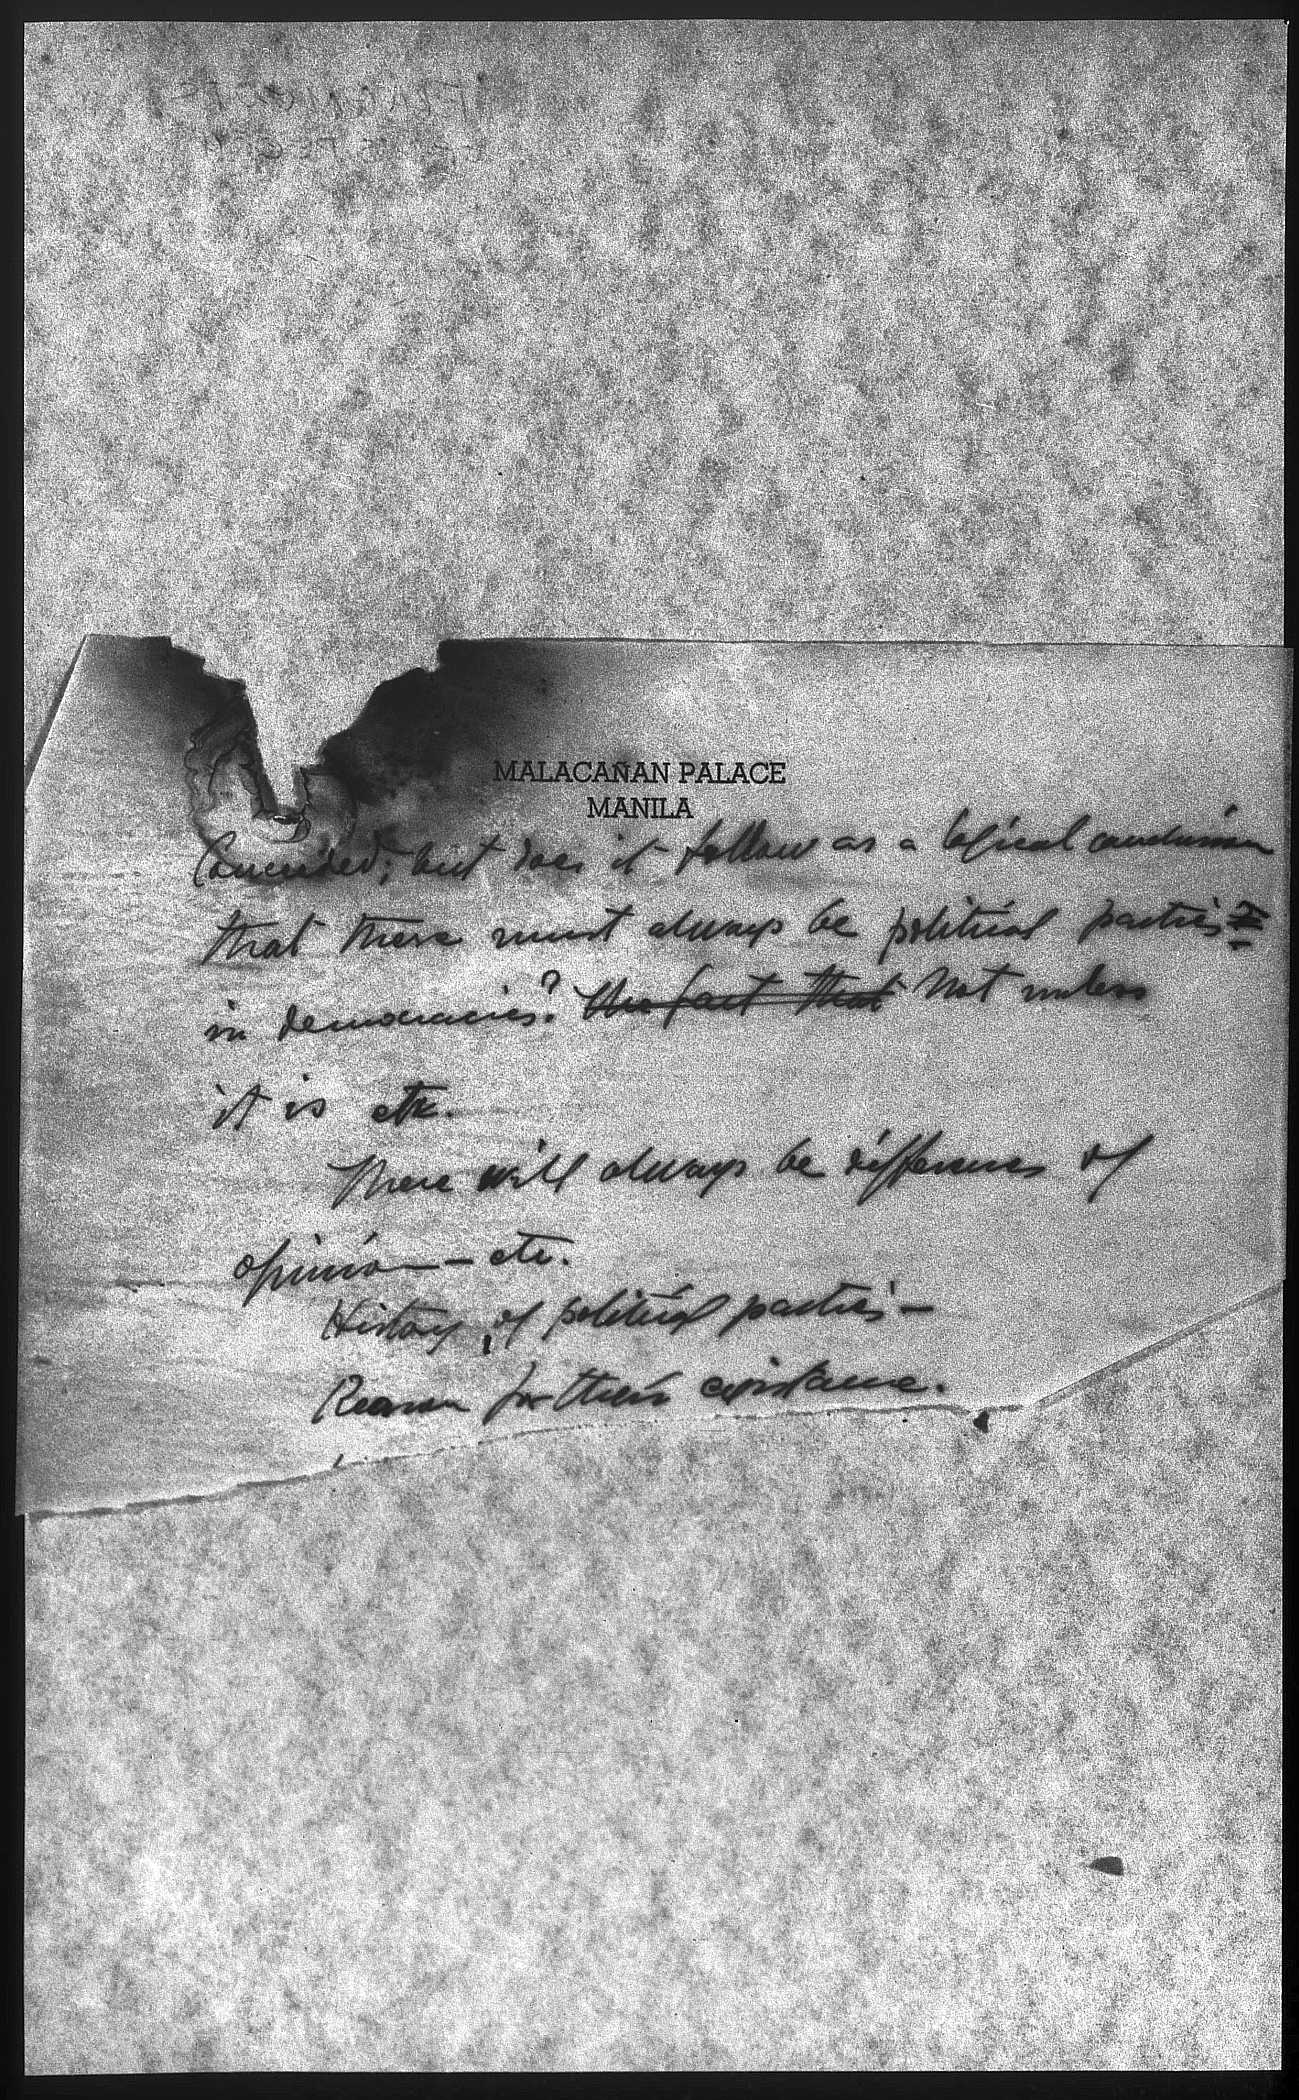 MALACAÑAN PALACE
MANILA
Conceded; but does it follow as a logical conclusion
that there must always be political parties
in democracies? the fact that Not unless
it is etc.
There will always be differences of
opinion — etc.
History of political parties —
Reason for their existence.